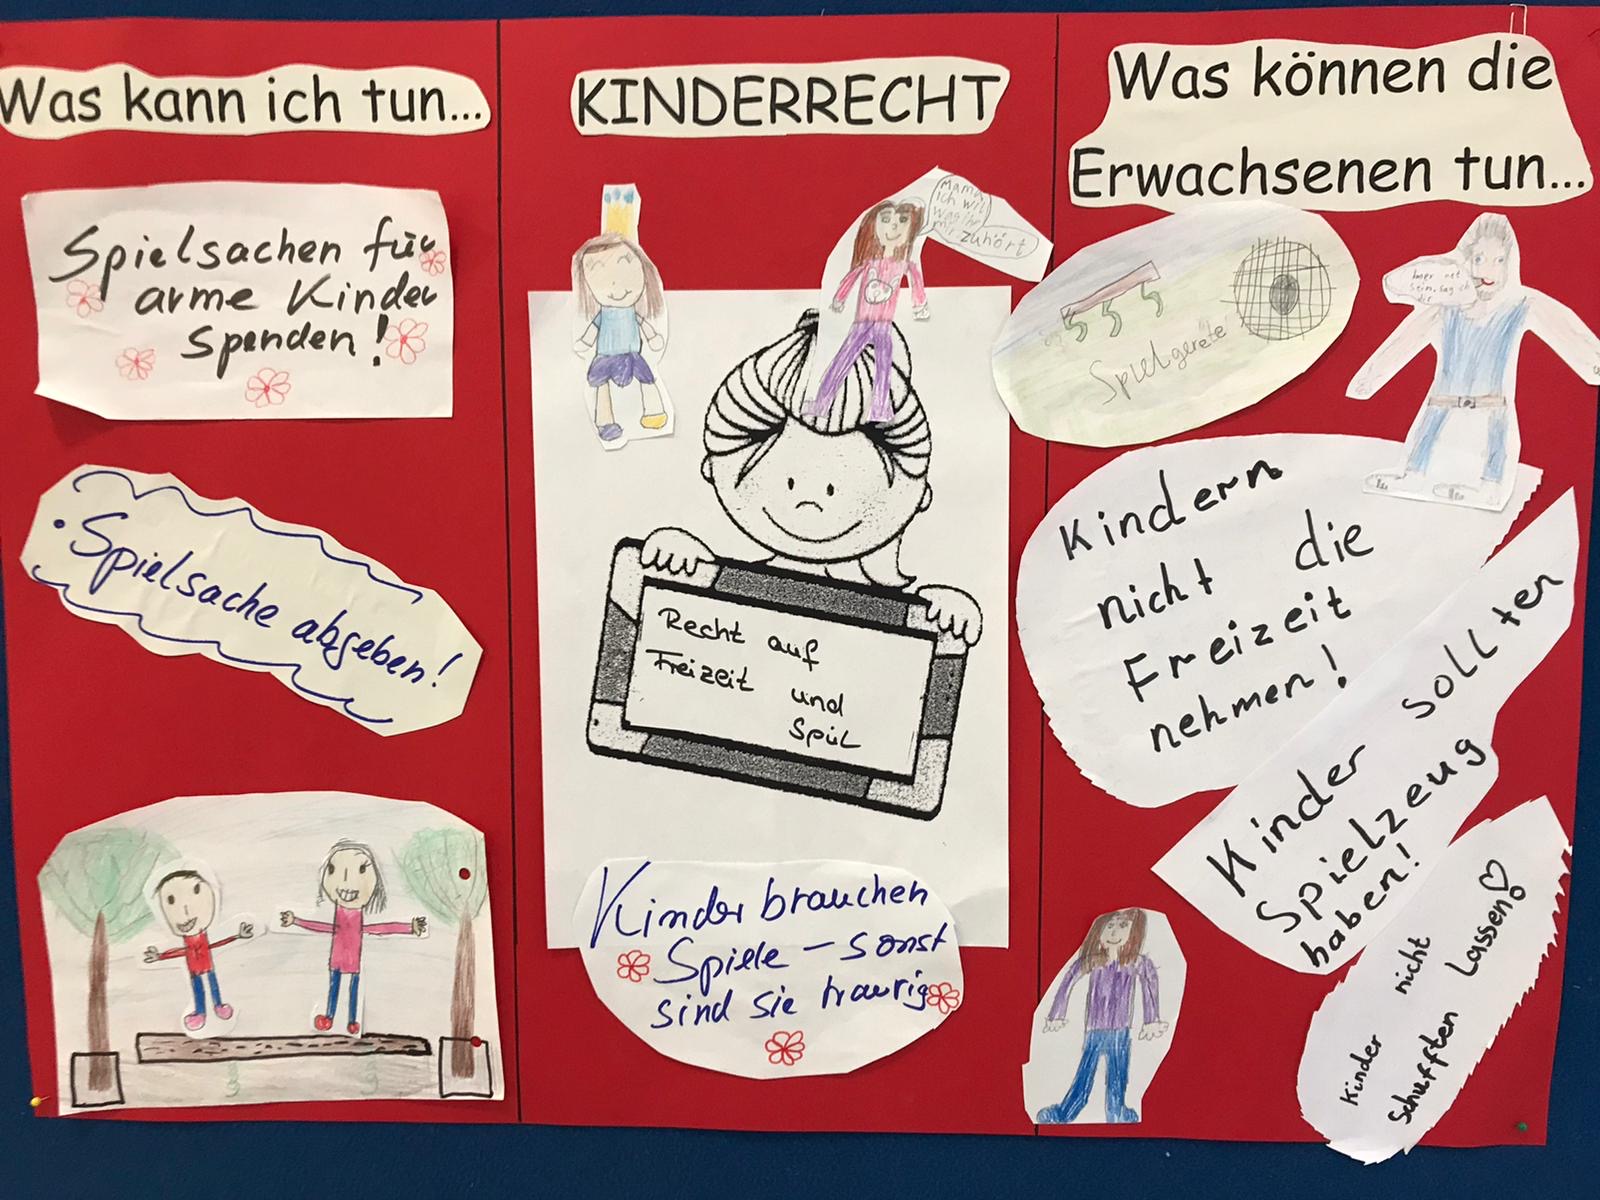 Was kann ich tun...
Spielsachen für
arme Kinder
spenden!
• Spielsache abgeben!
KINDERRECHT
Mama
ich will
mir zuhört
Recht auf
Freizeit und
Spiel
Kinder brauchen
Spiele – sonst
sind sie traurig
Was können die
Erwachsenen tun...
Spielgeräte
Kindern
nicht die
Freizeit
nehmen!
Kinder sollten
Spielzeug
haben!
Kinder nicht
schufften Lassen!